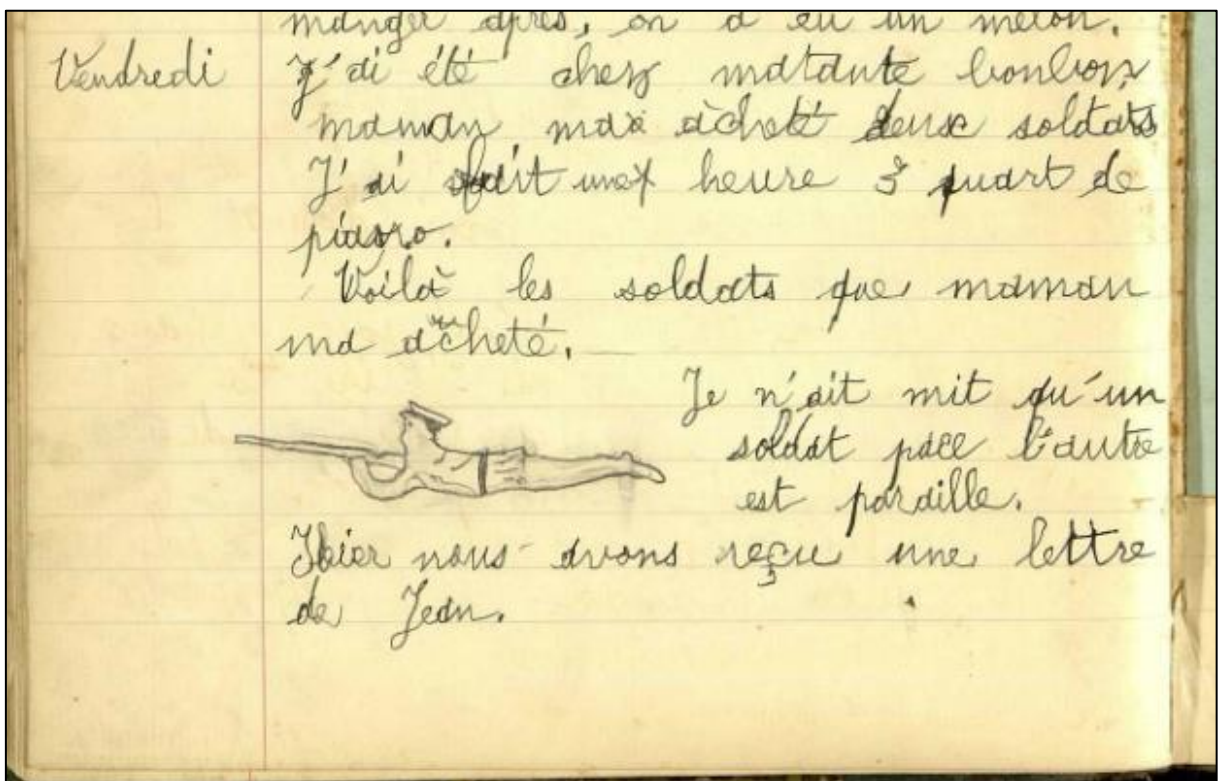 manger après, on a eu un melon.
Vendredi J'ai été chez matante bonbon
maman ma achoté deux soldats
J'ai fait une heure 3 quart de
piano.
Voilà les soldats que maman
ma acheté.
Je n'ait mit qu'un
soldat pace l'autre
est paraille.
Hier nous avons reçu une lettre
de Jean.